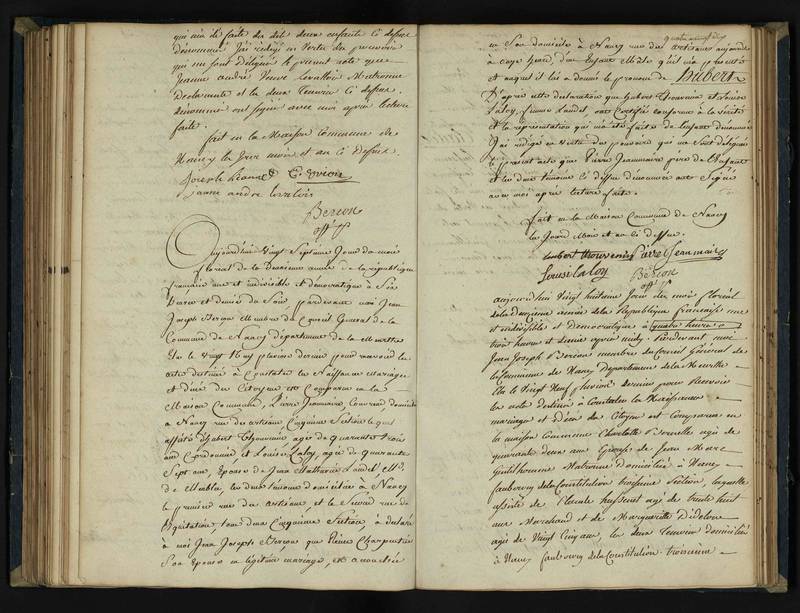 qui m'a été faite des dits deux enfants ci dessus
dénommés j'ai rédigé en vertu des pouvoirs
qui me sont délégués le présent acte que
Jeanne andré Veuve Levallois Matronne
Déclarante et les deux Témoins ci dessus
dénommés ont signés avec moi après lecture
faite.
fait en la Maison Commune de
Nancy les Jour mois et an ci dessus.
Joseph
Jeanne andré levalois
Berson
off. p.
Aujourd'hui vingt Septième Jour du mois
floreal de la deuxieme année de la république
francaise une et indivisible et démocratique à Six
heures et demies du Soir, pardevant moi Jean
Joseph Berson Membre du Conseil General de la
Commune de Nancy département de la Meurthe
Elu le vingt neuf pluviose dernier pour recevoir les
actes destinés à Constater les Naissances Mariages
et décès des Citoyens est Comparu en la
Maison Commune, Pierre Jeanmaire, Couvreur, domicilié
à Nancy rue des artisans, Cinquieme Section lequel
assisté d'hubert Thouvenin, agé de quarante trois
ans Cordonnier, et Louise Laloy, agée de quarante
Sept ans, Epouse de Jean
de Meubles, les deux témoins domiciliés à Nancy
le premier rue des artisans, et le Second rue de
l'Equitation tous deux Cinquieme Section a déclaré
à moi Jean Joseph Berson que Reine Charpentier
Son Epouse en légitime mariage, est accouchée
en Son domicile à Nancy rue des artisans aujourd'hui
à onze heures, d'un Enfant Mâle qu'il m'a présenté
et auquel il a donné le prenom de Hubert
D'après cette déclaration que hubert Thouvenin et Louise
Laloy, femme Landel, ont Certifiés conforme à la Vérité
et la représentation qui m'a été faite de l'enfant dénommé
J'ai rédigé en Vertu des pouvoirs qui me Sont délégués
le present acte que Pierre Jeanmaire père de l'Enfant
et les deux témoins ci dessus dénommés ont Signé
avec moi après lecture faite.
Fait en la Maison Commune de Nancy
les Jour Mois et an ci dessus.
hubert thouvenin Pierre Jeanmaire
Louise laloy Berson
off. p.
aujourd'hui vingt huitieme Jour du mois floréal
de la deuxieme année de la Republique française une
et indivisible et Democratique à quatre heures
trois heures et demie après midy Pardevant moi
Jean Joseph Berson membre du Conseil Général de
la Commune de Nancy Departement de la Meurthe
Elu le vingt Neuf pluviose dernier pour Recevoir
les acte destinés à Constater les Naissances
mariages et Décès des Citoyens est comparue en
la maison commune Charlotte agée de
quarante deux ans Epouse de Jean Marc
Gentilhomme Matronne domiciliée à Nancy
faubourg de la Constitution troisieme Section, laquelle
assistée de agé de trente huit
ans Marchand et de Marguerite Didelon
agée de Vingt Cinq ans, les deux Temoins domiciliés
à Nancy faubourg de la Constitution troisieme